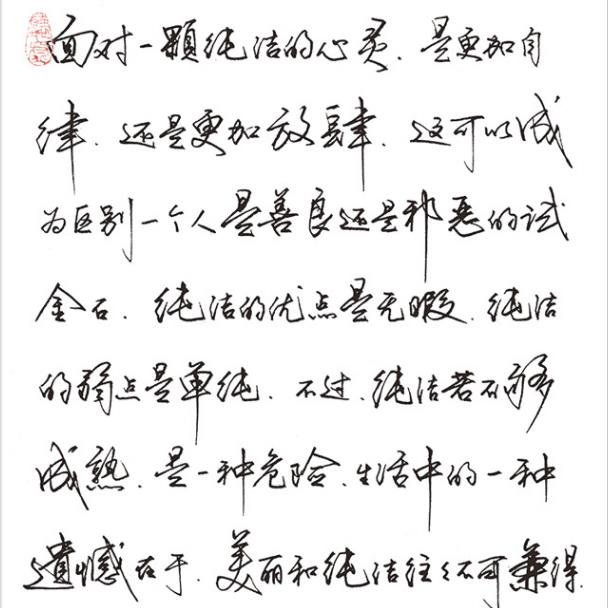 面对一颗纯洁的心灵.是更加自
律.还是更加放肆.这可以成
为区别一个人是善良还是邪恶的试
金石.纯洁的优点是无暇.纯洁
的弱点是单纯.不过.纯洁若不够
成熟.是一种危险.生活中的一种
遗憾在于.美丽和纯洁往往不可兼得.